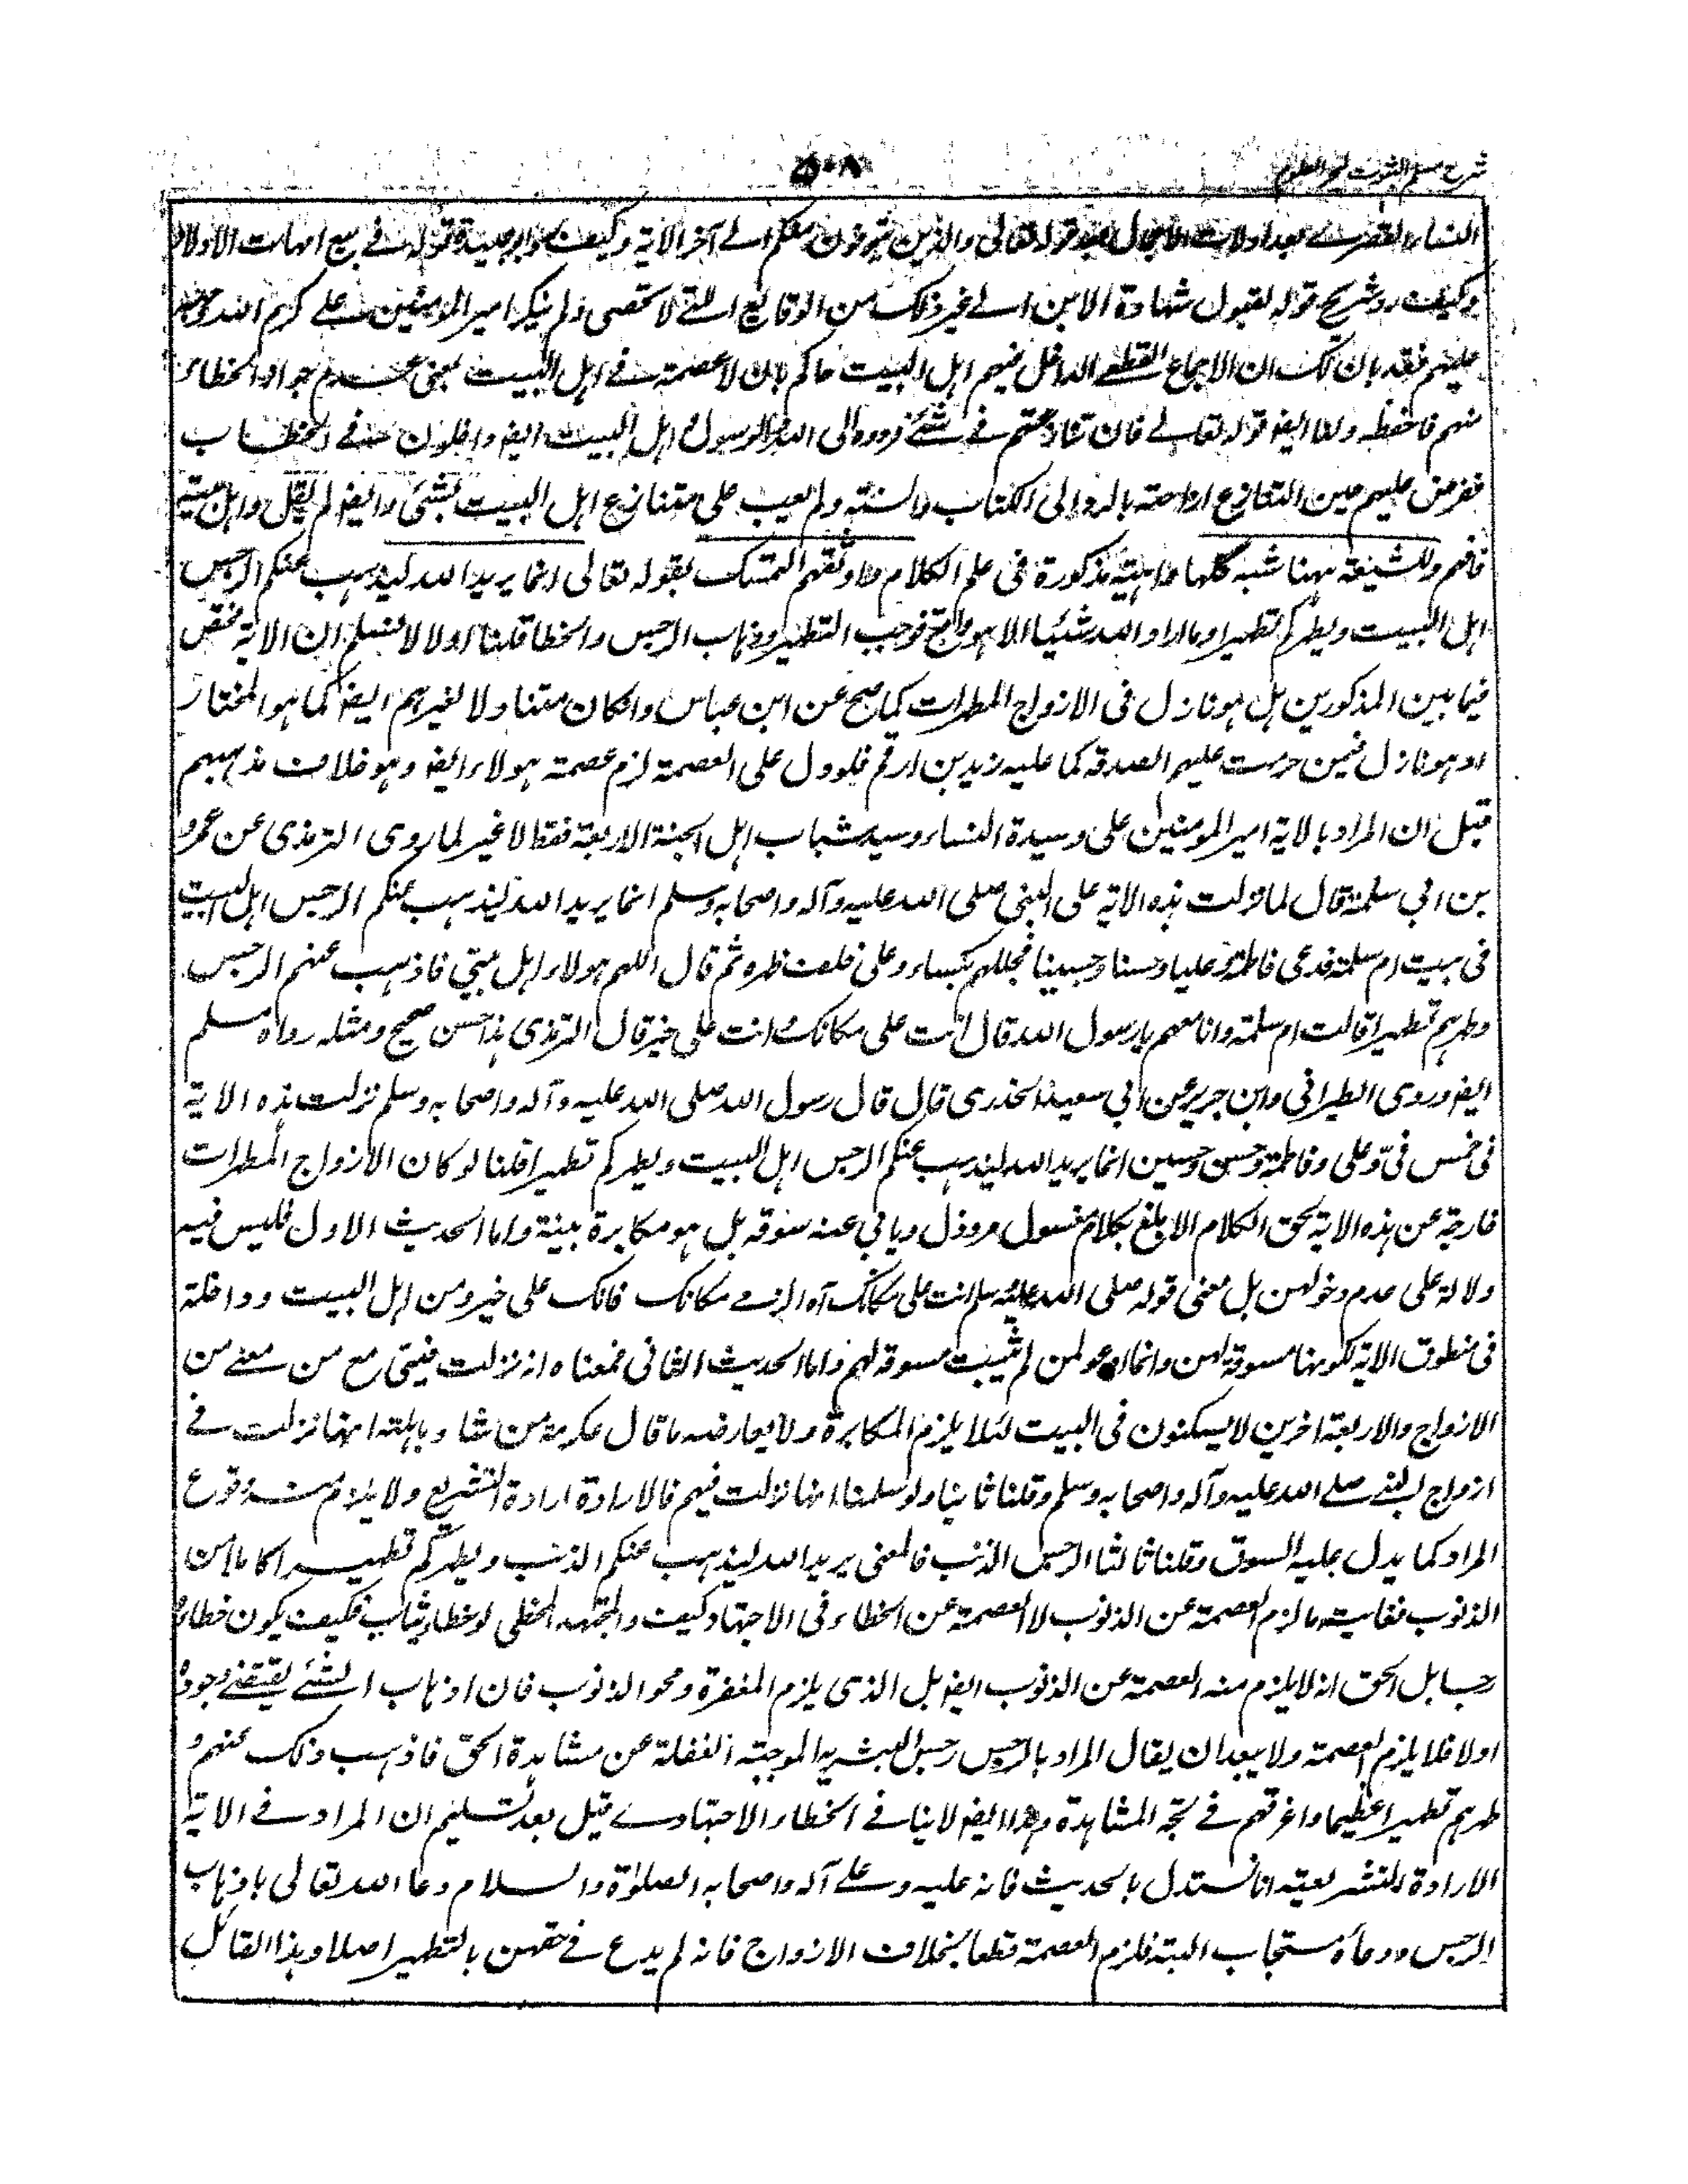 شرح مسلم الثبوت لبحر العلوم
۵۰۸
النساء القصرے بعد اولات الاحمال بعد قوله تعالى والذين يتوفون منكم الے آخر الآية وكيف رد ابو عبيدة قوله فے بيع امهات الاولاد
وكيف رد شريح قوله لقبول شهادة الابن الے غير ذلك من الوقائع التے لا تحصى ولم ينكر امير المؤمنين علے كرم الله وجهه
عليهم فقد بان لك ان الاجماع القطعے الداخل فيهم اهل البيت حاكم بان لا عصمة فے اهل البيت بمعنى عدم جواز الخطاء
منهم فاحفظه ولنا ايضا قوله تعالے فان تنازعتم فے شئے فردوه الى الله والرسول اهل البيت ايضا داخلون فے الخطاب
ففرض عليهم حين التنازع اراحته بالرد الى الكتاب والسنة ولم يعب على متنازع اهل البيت بشئ وايضا لم يقل واهل بيته
فافهم وللشيعة ههنا شبه كلها واهية مذكورة فى علم الكلام واوثقهم التمسك بقوله تعالى انما يريد الله ليذهب عنكم الرجس
اهل البيت ويطهركم تطهيرا وما اراد الله شيئا الا هو واقع فوجب التطهير وذهاب الرجس والخطا قلنا اولا لا نسلم ان الآية مختص
فيما بين المذكورين بل هو نازل فى الازواج المطهرات كما صح عن ابن عباس وان كان متناولا لغيرهم ايضا كما هو المختار
او هو نازل فيمن حرمت عليهم الصدقه كما عليه زيد بن ارقم فلو دل على العصمة لزم عصمة هولاء ايضا وهو خلاف مذهبهم
قيل ان المراد بالآية امير المومنين على وسيدة النساء وسيدا شباب اهل الجنة الاربعة فقط لا غير لما روى الترمذى عن عمرو
بن ابي سلمة قال لما نزلت هذه الآية على النبى صلى الله عليه وآله واصحابه وسلم انما يريد الله ليذهب عنكم الرجس اهل البيت
فى بيت ام سلمة فدعى فاطمة وعليا وحسنا وحسينا فجللهم بكساء وعلى خلف ظهره ثم قال اللهم هولاء اهل بيتي فاذهب عنهم الرجس
وطهرهم تطهيرا قالت ام سلمة وانا معهم يا رسول الله قال انت على مكانك انت على خير قال الترمذى هذا حسن صحيح ومثله رواه مسلم
ايضا وروى الطبرانى وابن جرير عن ابي سعيد الخدرى قال قال رسول الله صلى الله عليه وآله واصحابه وسلم نزلت هذه الآية
فى خمس فىّ وعلى وفاطمة وحسن وحسين انما يريد الله ليذهب عنكم الرجس اهل البيت ويطهركم تطهيرا قلنا لو كان الازواج المطهرات
خارجة عن هذه الآية لحق الكلام الابلغ بكلام مغسول مرذول ويابي عنه سوقه بل هو مكابرة بينة واما الحديث الاول فليس فيه
دلالة على عدم دخولهن بل معنى قوله صلى الله عليه وسلم انت على مكانك آه الزمے مكانك فانك على خير ومن اهل البيت وداخلة
فى منطوق الآية لكونها مسوقة لهن وانما ادعو لمن لم تثبت مسوقة لهم واما الحديث الثانى فمعناه انه نزلت فيتى مع من معنے من
الازواج والاربعة اخرين لا يسكنون فى البيت لئلا يلزم المكابرة ولا يعارضه ما قال عكرمة من شاء باهلته انها نزلت فے
ازواج النبے صلے الله عليه وآله واصحابه وسلم وقلنا ثانيا ولو سلمنا انها نزلت فيهم فالارادة ارادة التشريع ولا يلزم منه وقوع
المراد كما يدل عليه السوق وقلنا ثالثا الرجس الذنب فالمعنى يريد الله ليذهب عنكم الذنب ويطهركم تطهيرا كاملا من
الذنوب فغايته ما لزم العصمة عن الذنوب لا العصمة عن الخطاء فى الاجتهاد كيف والمجتهد المخطى لو خطاء يثاب فكيف يكون خطاءه
رجسا بل الحق انه لا يلزم منه العصمة عن الذنوب ايضا بل الذى يلزم المغفرة ومحو الذنوب فان اذهاب الشئے يقتضے وجوده
اولا فلا يلزم العصمة ولا يبعد ان يقال المراد بالرجس رجس البشريه الموجبة الغفلة عن مشاهدة الحق فاذهب ذلك عنهم و
طهرهم تطهيرا عظيما واغرقهم فے لجة المشاهدة وهذا ايضا لا ينافے الخطاء الاجتهادے قيل بعد تسليم ان المراد فے الآية
الارادة التشريعية انا نستدل بالحديث فانه عليه وعلے آله واصحابه الصلوٰة والسلام دعا الله تعالى باذهاب
الرجس ودعاءه مستجاب البتة فلزم العصمة قطعا بخلاف الازواج فانه لم يدع فے حقهن بالتطهير اصلا وهذا القائل